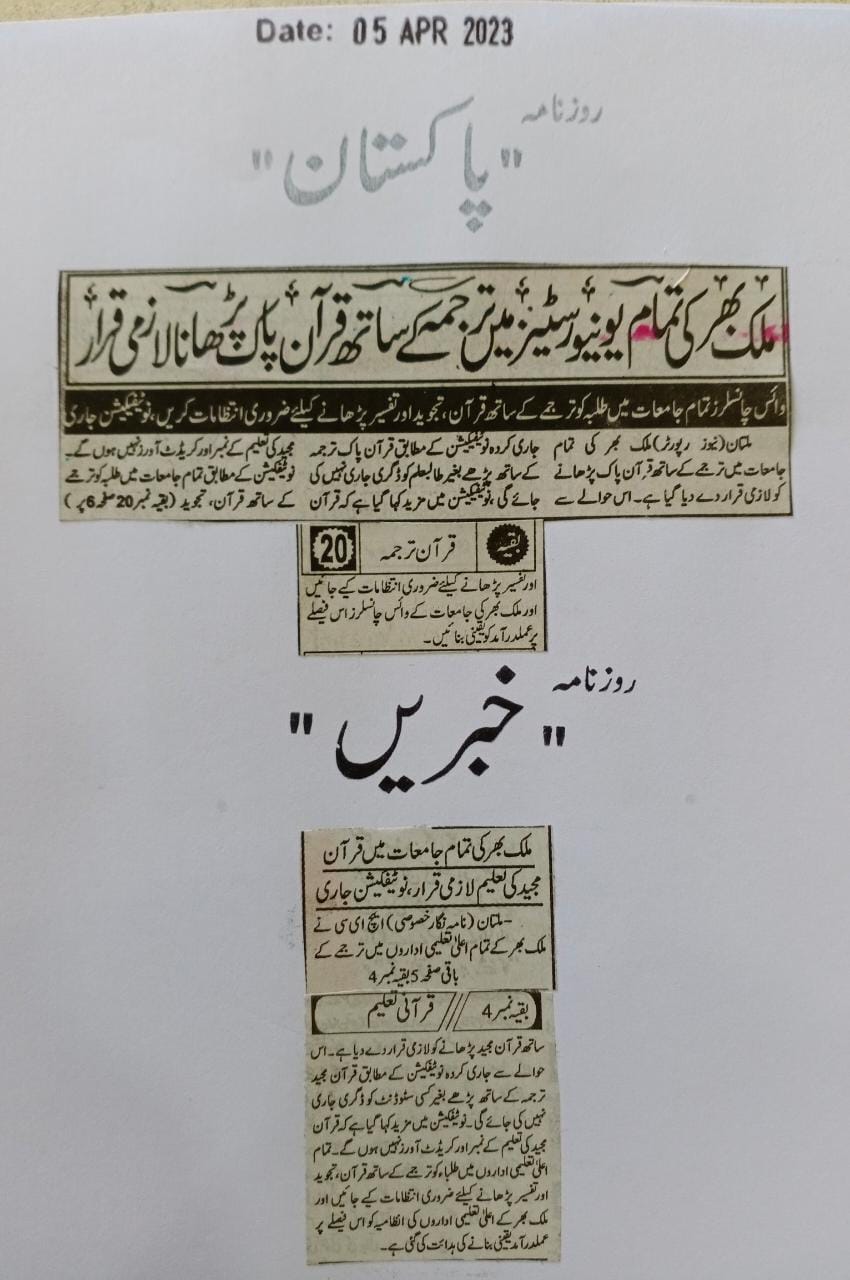 Date: 05 APR 2023
روزنامہ
"پاکستان"
ملک بھر کی تمام یونیورسٹیز میں ترجمہ کے ساتھ قرآن پاک پڑھانا لازمی قرار
وائس چانسلرز تمام جامعات میں طلبہ کو ترجمے کے ساتھ قرآن، تجوید اور تفسیر پڑھانے کیلئے ضروری انتظامات کریں، نوٹیفکیشن جاری
ملتان (نیوز رپورٹر) ملک بھر کی تمام
جامعات میں ترجمے کے ساتھ قرآن پاک پڑھانے
کو لازمی قرار دے دیا گیا ہے۔ اس حوالے سے
جاری کردہ نوٹیفکیشن کے مطابق قرآن پاک ترجمہ
کے ساتھ پڑھے بغیر طالبعلم کو ڈگری جاری نہیں کی
جائے گی، نوٹیفکیشن میں مزید کہا گیا ہے کہ قرآن
مجید کی تعلیم کے نمبر اور کریڈٹ آورز نہیں ہوں گے۔
نوٹیفکیشن کے مطابق تمام جامعات میں طلبہ کو ترجمے
کے ساتھ قرآن، تجوید (بقیہ نمبر 20 صفحہ 6 پر)
بقیہ قرآن ترجمہ 20
اور تفسیر پڑھانے کیلئے ضروری انتظامات کیے جائیں
اور ملک بھر کی جامعات کے وائس چانسلرز اس فیصلے
پر عملدرآمد کو یقینی بنائیں۔
روزنامہ
"خبریں"
ملک بھر کی تمام جامعات میں قرآن
مجید کی تعلیم لازمی قرار، نوٹیفکیشن جاری
ملتان (نامہ نگار خصوصی) ایچ ای سی نے
ملک بھر کے تمام اعلیٰ تعلیمی اداروں میں ترجمے کے
باقی صفحہ 5 بقیہ نمبر 4
بقیہ نمبر 4 // قرآنی تعلیم
ساتھ قرآن مجید پڑھانے کو لازمی قرار دے دیا ہے۔ اس
حوالے سے جاری کردہ نوٹیفکیشن کے مطابق قرآن مجید
ترجمہ کے ساتھ پڑھے بغیر کسی سٹوڈنٹ کو ڈگری جاری
نہیں کی جائے گی۔ نوٹیفکیشن میں مزید کہا گیا ہے کہ قرآن
مجید کی تعلیم کے نمبر اور کریڈٹ آورز نہیں ہوں گے۔ تمام
اعلیٰ تعلیمی اداروں میں طلباء کو ترجمے کے ساتھ قرآن، تجوید
اور تفسیر پڑھانے کیلئے ضروری انتظامات کیے جائیں اور
ملک بھر کے اعلیٰ تعلیمی اداروں کی انتظامیہ کو اس فیصلے پر
عملدرآمد یقینی بنانے کی ہدائت کی گئی ہے۔